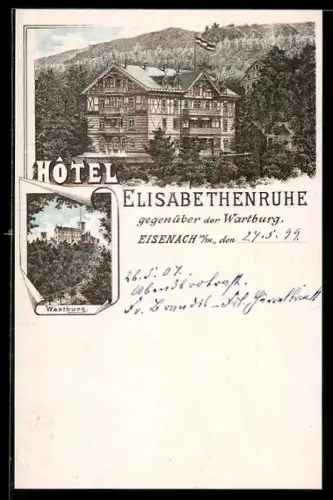 HÔTEL
ELISABETHENRUHE
gegenüber der Wartburg.
EISENACH a/Th., den 27.5.99
Wartburg.
26.5.07.
Fr. Brandis - Frl.